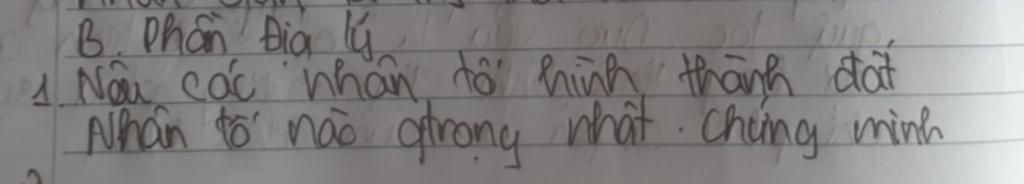 B. Phần Địa lý
1. Nêu các nhân tố hình thành đất
Nhân tố nào qtrọng nhất. Chứng minh